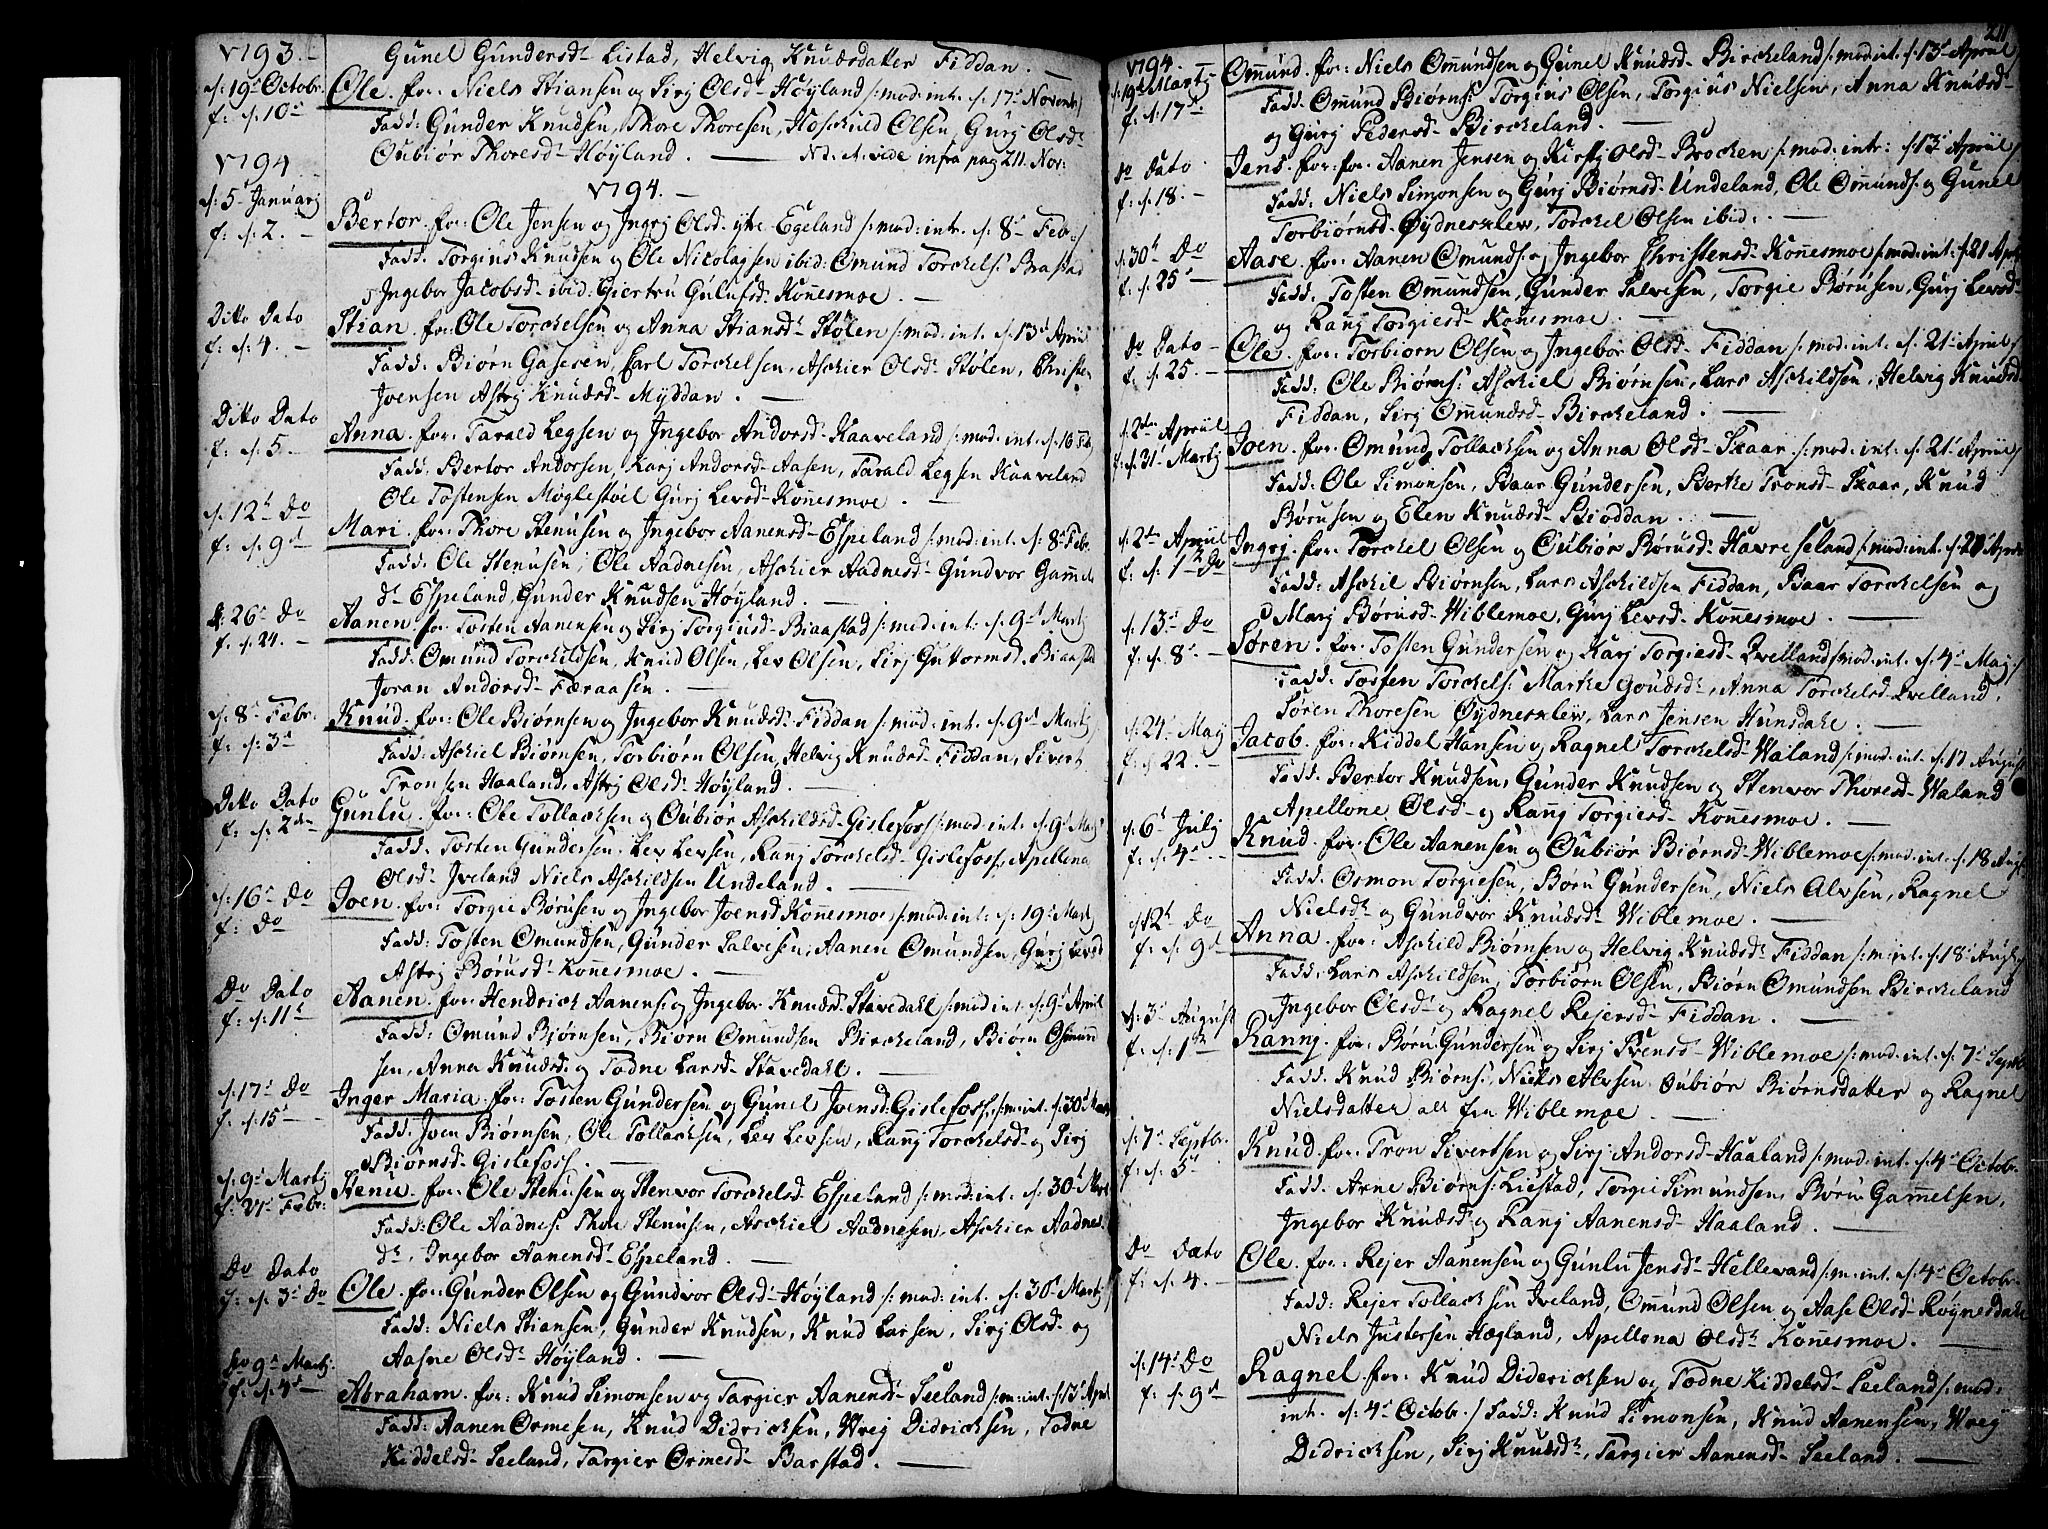 1793.
Gunel Gundersd. Listad, Helvig Knudsdatter Fiddan. —
d: 19d Octobr. Ole. for: Niels Stiansen og Sirj Olsd. Høyland /: mod: int. d: 17d Novembr /
f: d: 10d Fadd: Gunder Knudsen, Thore Thoresen, Hoskuld Olsen, Gurj Olsd.
Oubiør Thoresd. Høyland. — Nd. d. vide infra pag 211. Nov:
1794
1794. —
d: 5d Januarj Bertor. for: Ole Jensen og Ingrj Olsd. ytre Egeland /: mod: int. d: 8d Febr: /
f: d: 2. — Fadd. Torgius Knudsen og Ole Nicolajsen ibid: Omund Torckels: Brastad
Ingebor Jacobsd. ibid: Giertru Gulufsd. Konnesmoe. —
Ditto Dato Stian. for: Ole Torckelsen og Anna Stiansd. Stølen /: mod: int. d: 13d April
f: d: 4. — Fadd: Biørn Gasesen, Carl Torckelsen, Askier Olsd. Stølen, Christen
Joensen Astrj Knudsd. Myddan. —
Ditto Dato Anna. for: Tarald Legsen og Ingebor Andorsd. Kaaveland /: mod: int. d. 16 Feb
f: d. 5. — Fadd: Bertor Andorsen, Karj Andorsd. Aasen, Tarald Legsen Kaaveland
Ole Tostensen Møglestøel Gurj Levsd. Konnesmoe. —
d. 12d Do Mari. for: Thore Stenusen og Ingebor Aanensd. Espeland /: mod: int. d: 8d Febr.
f: d: 9d Fadd: Ole Stenusen, Ole Aadnesen, Askier Aadnesd. Gundvor Gammels
d. Espeland, Gunder Knudsen Høyland. —
d: 26d Do Aanen for Tosten Aanensen og Sirj Torgiusd. Biaastad /: mod: int: d: 9d Martj
f: d. 24. — Fadd: Omund Torckildsen, Knud Olsen, Lev Olsen, Sirj Guttormsd. Biaastad
Joran Andorsd. Færaasen. —
d: 8d Febr. Knud. for: Ole Biørnsen og Ingebor Knudsd. Fiddan /: mod: int. d. 9d Martj
f: d: 3d Fadd: Askiel Biørnsen, Torbiørn Olsen, Helvig Knudsd. Fiddan, Sivert
Tronsen Haaland, Astrj Olsd. Høyland. —
Ditto Dato Gunlu. for: Ole Tollacksen og Oubiør Askildsd. Gislefoss /: mod: int. d. 9d Martj
f: d: 2den Fadd: Tosten Gundersen, Lev Levsen, Rannj Torckelsd. Gislefoss, Apellena
Olsd. Iveland Niels Askildsen Undeland. —
d: 16d Do Joen. for: Torgie Børusen og Ingebor Joensd. Konnesmoe /: mod: int. d: 19d Martj
f: Do Fadd: Tosten Omundsen, Gunder Salvesen, Aanen Omundsen, Gurj Levsd
Astrj Børusd. Konnesmoe. —
Do Dato Aanen. for: Hendrick Aanens: og Ingebor Knudsd. Stavedahl /: mod int. d: 9d April
f: d: 11d Fadd: Omund Biørnsen, Biørn Omundsen Birckeland, Biørn Osmund
sen, Anna Knudsd. og Todne Larsd. Stavedahl. —
d: 17d Do Inger Maria for: Tosten Gundersen og Gunel Joensd. Gislefoss, /: m: int. d: 30d Mart
f: d: 15d — Fadd: Joen Biørnsen, Ole Tollacksen, Lev Levsen, Rannj Torckelsd. og Sirj
Biørnsd. Gislefoss. —
d: 9d Martj Stenu. for: Ole Stenusen og Stenvor Torckelsd. Espeland /: mod: int. d: 30d Mart
f: 21d Febr: Fadd: Ole Aadnes: Thore Stenusen, Askiel Aadnesen, Askier Aadnes:
d., Ingebor Aanensd. Espeland. —
Do Dato Ole. for: Gunder Olsen og Gundvor Olsd. Høyland /: mod: int. d: 30d Martj /
f: d: 3d Do Fadd: Niels Stiansen, Gunder Knudsen, Knud Larsen, Sirj Olsd. og
Aasne Olsd. Høyland. —
Do 9d Martj: Abraham. for: Knud Simonsen og Targier Aanensd. Seeland /: m: int. d: 13d April
f: d: 4d — Fadd: Aanen Ormesen, Knud Didricksen, Wreg Didricksen, Todne
Kiddelsd. Seeland, Targier Ormesd. Barstad. —
211
1794.
d: 19d Martj Ommund. for: Niels Ommundsen og Gunel Knudsd. Birckeland /: mod int. d: 13d April /
f: d: 17d Fadd: Ommund Biørns: Torgius Olsen, Torgius Nielsen, Anna Knudsd.
og Gurj Pedersd. Birckeland. —
Do Dato Jens. for: for: Aanen Jensen og Kirstj Olsd. Brocken /: mod: intr: d: 13d April /
f: d. 18. — Fadd: Niels Simonsen og Gurj Biørnsd. Undeland, Ole Ommunds: og Gunel
Torbiørnsd. Øydnesklev, Torckel Olsen ibid: —
d: 30d Do Aase. for: Aanen Omunds: og Ingebor Christensd. Konnesmoe /: mod: int: d: 21 April
f: d. 25d Fadd: Tosten Omundsen, Gunder Salvesen, Torgie Børusen, Gurj Levsd.
og Rannj Torgiesd. Konnesmoe. —
Do Dato Ole. for: Torbiørn Olsen og Ingebor Olsd. Fiddan /: mod: int. d. 21d April /
f: d. 25. — Fadd: Ole Biørns: Askiel Biørnsen, Lars Askildsen, Helvig Knudsd.
Fiddan, Sirj Ommundsd. Birckeland. —
d: 2den April Joen. for: Omund Tollacksen og Anna Olsd. Skaar /: mod: int. d. 21d April /
f: d. 31d Martj Fadd: Ole Simonsen, Baar Gundersen, Berthe Tronsd. Skaar, Knud
Børusen og Elen Knudsd. Bioddan. —
d: 2den April Ingrj. for: Torckel Olsen og Oubiør Børusd. Hawreseland /: mod: int. d: 21 April
f: d: 1ste Do Fadd: Askil Biørnsen, Lars Askildsen Fiddan, Baar Torckelsen og
Marj Børusd. Wiblemoe, Gurj Levsd. Konnesmoe. —
d: 13d Do Søren. for: Tosten Gundersen og Karj Torgiesd. Qvelland /: mod: int. d: 4d Maj /
f: d: 8d — Fadd: Tosten Torckels: Marthe Goudsd., Anna Torckelsd. Qvelland,
Søren Thoresen Øydnesklev, Lars Jensen Hunsdahl. —
d: 24d Maj Jacob. for: Kiddel Hansen og Ragnel Torckelsd. Waland /: mod: int. d. 17 August
f: d 22. — Fadd: Bertor Knudsen, Gunder Knudsen og Stenvor Thoresd. Waland
Apellone Olsd. og Rannj Torgiesd. Konnesmoe. —
d: 6d Julj Knud. for: Ole Aanensen og Oubiør Biørnsd. Wiblemoe /: mod: int. d: 18 Augst
f: d: 4d — Fadd. Osmon Torgiesen, Børu Gundersen, Niels Alvsen, Ragnel
Nielsd. og Gundvor Knudsd. Wiblemoe. —
d: 12d Do Anna. for: Askild Biørnsen og Helvig Knudsd. Fiddan /: m: int. d: 18d Augst /
f: d: 9d Fadd: Lars Askildsen, Torbiørn Olsen, Biørn Omundsen Birckeland
Ingebor Olsd. og Ragnel Rejersd. Fiddan. —
d: 3d August Rannj. for: Børu Gundersen og Sirj Svensd. Wiblemoe /: mod: int. d: 7d Septbr
f: d: 1ste — Fadd: Knud Biørns: Niels Alvsen Oubiør Biørnsdatter og Ragnel
Nielsdatter all fra Wiblemoe —
d: 7d Septbr. Knud for: Tron Sivertsen og Sirj Andorsd. Haaland /: mod: int. d: 4d Octobr.
f: d: 3d Fadd: Arne Biørns: Liestad, Torgie Simundsen, Børu Gammelsen,
Ingebor Knudsd. og Rannj Aanensd. Haaland. —
Do Dato Ole. for: Rejer Aanensen og Gunlu Jensd. Hellewand /: m: int. d. 4d Octobr.
f: d. 4. — Fadd: Rejer Tollacksen Iveland, Ommund Olsen og Aase Olsd. Røynesdahl
Niels Justersen Hægland, Apellona Olsd. Konnesmoe. —
d: 14d Do Ragnel for: Knud Didericksen og Todne Kiddelsd. Seeland /: mod:
f: d. 9d int. d: 4d Octobr. / Fadd: Knud Simonsen, Knud Aanensen, Wreg
Didricksen, Sirj Knudsd., Targier Aanensd. Seeland. —